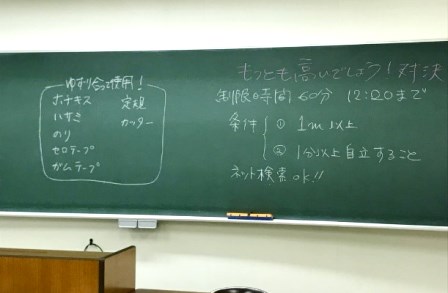 ゆずり合って使用!
ホチキス 定規
ハサミ カッター
のり
セロテープ
ガムテープ
もっとも高いでしょう!対決
制限時間 60分 12:20まで
条件 ① 1m以上
② 1分以上自立すること
ネット検索ok!!